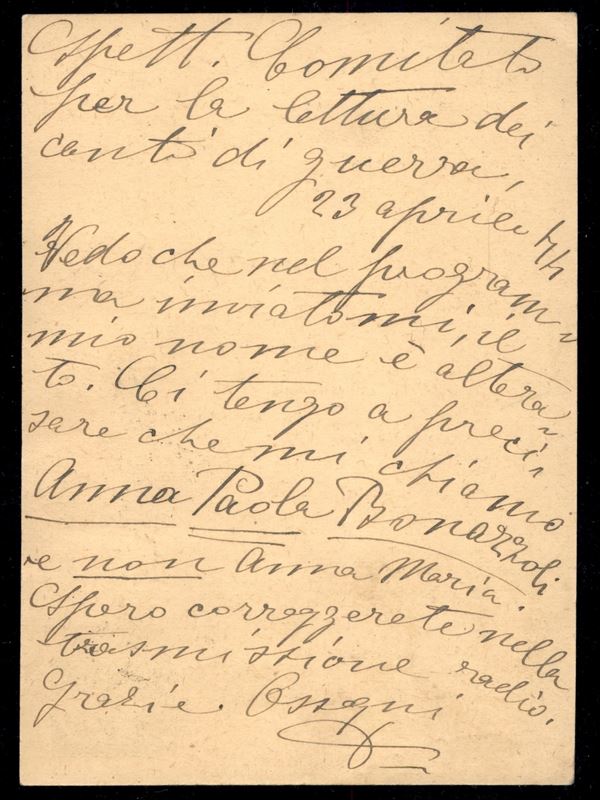 Spett. Comitato
per la lettura dei
canti di guerra,
23 aprile 44
Vedo che nel program-
ma inviatomi, il
mio nome è altera-
to. Ci tengo a preci-
sare che mi chiamo
Anna Paola Bonazzoli
e non Anna Maria.
Spero correggerete nella
trasmissione radio.
Grazie. Ossequi